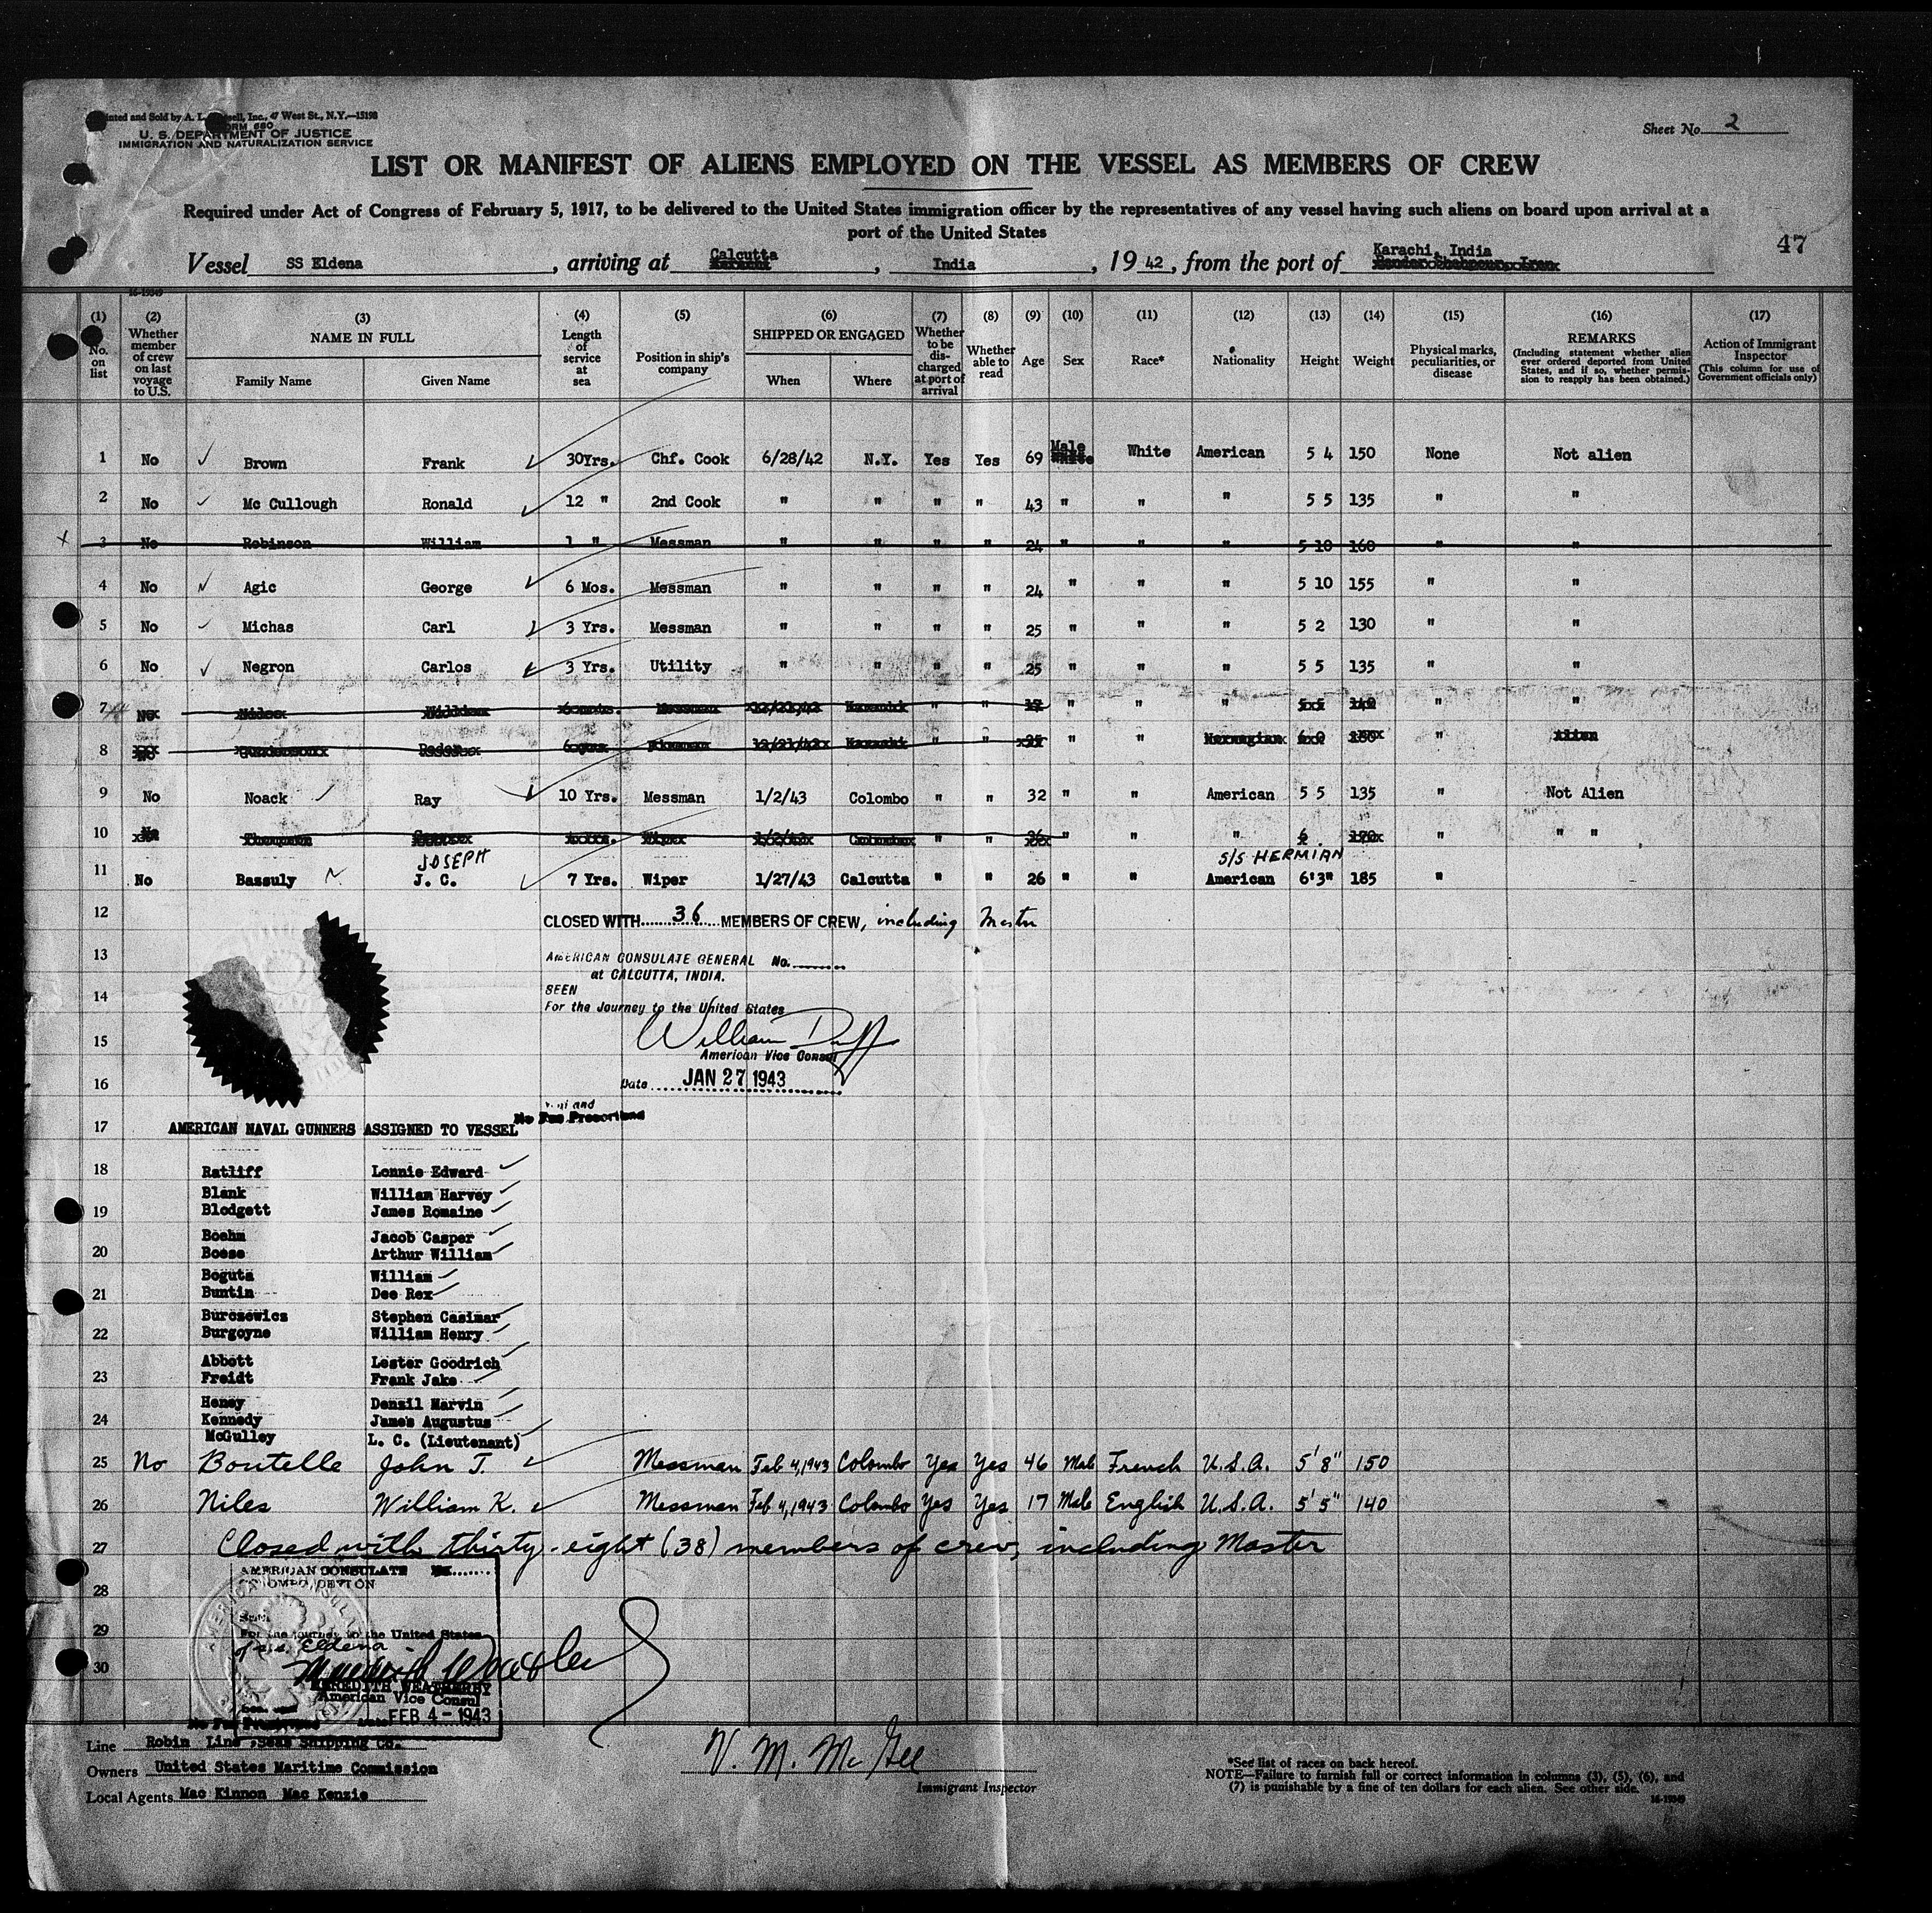 Sheet No. 2
U. S. DEPARTMENT OF JUSTICE
IMMIGRATION AND NATURALIZATION SERVICE
LIST OR MANIFEST OF ALIENS EMPLOYED ON THE VESSEL AS MEMBERS OF CREW
Required under Act of Congress of February 5, 1917, to be delivered to the United States immigration officer by the representatives of any vessel having such aliens on board upon arrival at a
port of the United States
47
Vessel SS Eldena, arriving at Calcutta, India, 1942, from the port of Karachi, India
(1) No. on list
(2) Whether member of crew on last voyage to U.S.
(3) NAME IN FULL Family Name Given Name
(4) Length of service at sea
(5) Position in ship's company
(6) SHIPPED OR ENGAGED When Where
(7) Whether to be discharged at port of arrival
(8) Whether able to read
(9) Age
(10) Sex
(11) Race*
(12) Nationality
(13) Height
(14) Weight
(15) Physical marks, peculiarities, or disease
(16) REMARKS (Including statement whether alien ever ordered deported from United States, and if so, whether permission to reapply has been obtained.)
(17) Action of Immigrant Inspector (This column for use of Government officials only)
1 No Brown Frank 30Yrs. Chf. Cook 6/28/42 N.Y. Yes Yes 69 Male White American 5 4 150 None Not alien
2 No Mc Cullough Ronald 12 " 2nd Cook " " " " 43 " " " 5 5 135 " "
3 No Robinson William 1 " Messman " " " " 24 " " " 5 10 160 " "
4 No Agic George 6 Mos. Messman " " " " 24 " " " 5 10 155 " "
5 No Michas Carl 3 Yrs. Messman " " " " 25 " " " 5 2 130 " "
6 No Negron Carlos 3 Yrs. Utility " " " " 25 " " " 5 5 135 " "
7 " " " " " " "
8 " " " " "
9 No Noack Ray 10 Yrs. Messman 1/2/43 Colombo " " 32 " " American 5 5 135 " Not Alien
10 " " " " " " "
JOSEPH S/S HERMIAN
11 No Bassuly J. C. 7 Yrs. Wiper 1/27/43 Calcutta " " 26 " " American 6'3" 185 "
12 CLOSED WITH 36 MEMBERS OF CREW, including Master
13 AMERICAN CONSULATE GENERAL No.
at CALCUTTA, INDIA.
14 SEEN
For the Journey to the United States
15 William Duff
American Vice Consul
16 Date JAN 27 1943
No Fee Prescribed
17 AMERICAN NAVAL GUNNERS ASSIGNED TO VESSEL
18 Ratliff Lonnie Edward
Blank William Harvey
19 Blodgett James Romaine
Boehm Jacob Casper
20 Boese Arthur William
Boguta William
21 Buntin Dee Rex
Burczewics Stephen Casimar
22 Burgoyne William Henry
Abbott Lester Goodrich
23 Freidt Frank Jake
Heney Denzil Marvin
24 Kennedy James Augustus
McGulley L. C. (Lieutenant)
25 No Boutelle John T. Messman Feb 4, 1943 Colombo Yes Yes 46 Male French U.S.A. 5' 8" 150
26 Niles William K. Messman Feb 4, 1943 Colombo Yes Yes 17 Male English U.S.A. 5' 5" 140
27 Closed with thirty-eight (38) members of crew, including Master
AMERICAN CONSULATE
28
29 For the journey to the United States
of s.s. Eldena
30
MEREDITH WEATHERBY
American Vice Consul
FEB 4 - 1943
Line Robin Line, Seas Shipping Co.
Owners United States Maritime Commission
Local Agents Mac Kinnon Mac Kenzie
V. M. McGee
Immigrant Inspector
*See list of races on back hereof.
NOTE—Failure to furnish full or correct information in columns (3), (5), (6), and
(7) is punishable by a fine of ten dollars for each alien. See other side.
16-19349